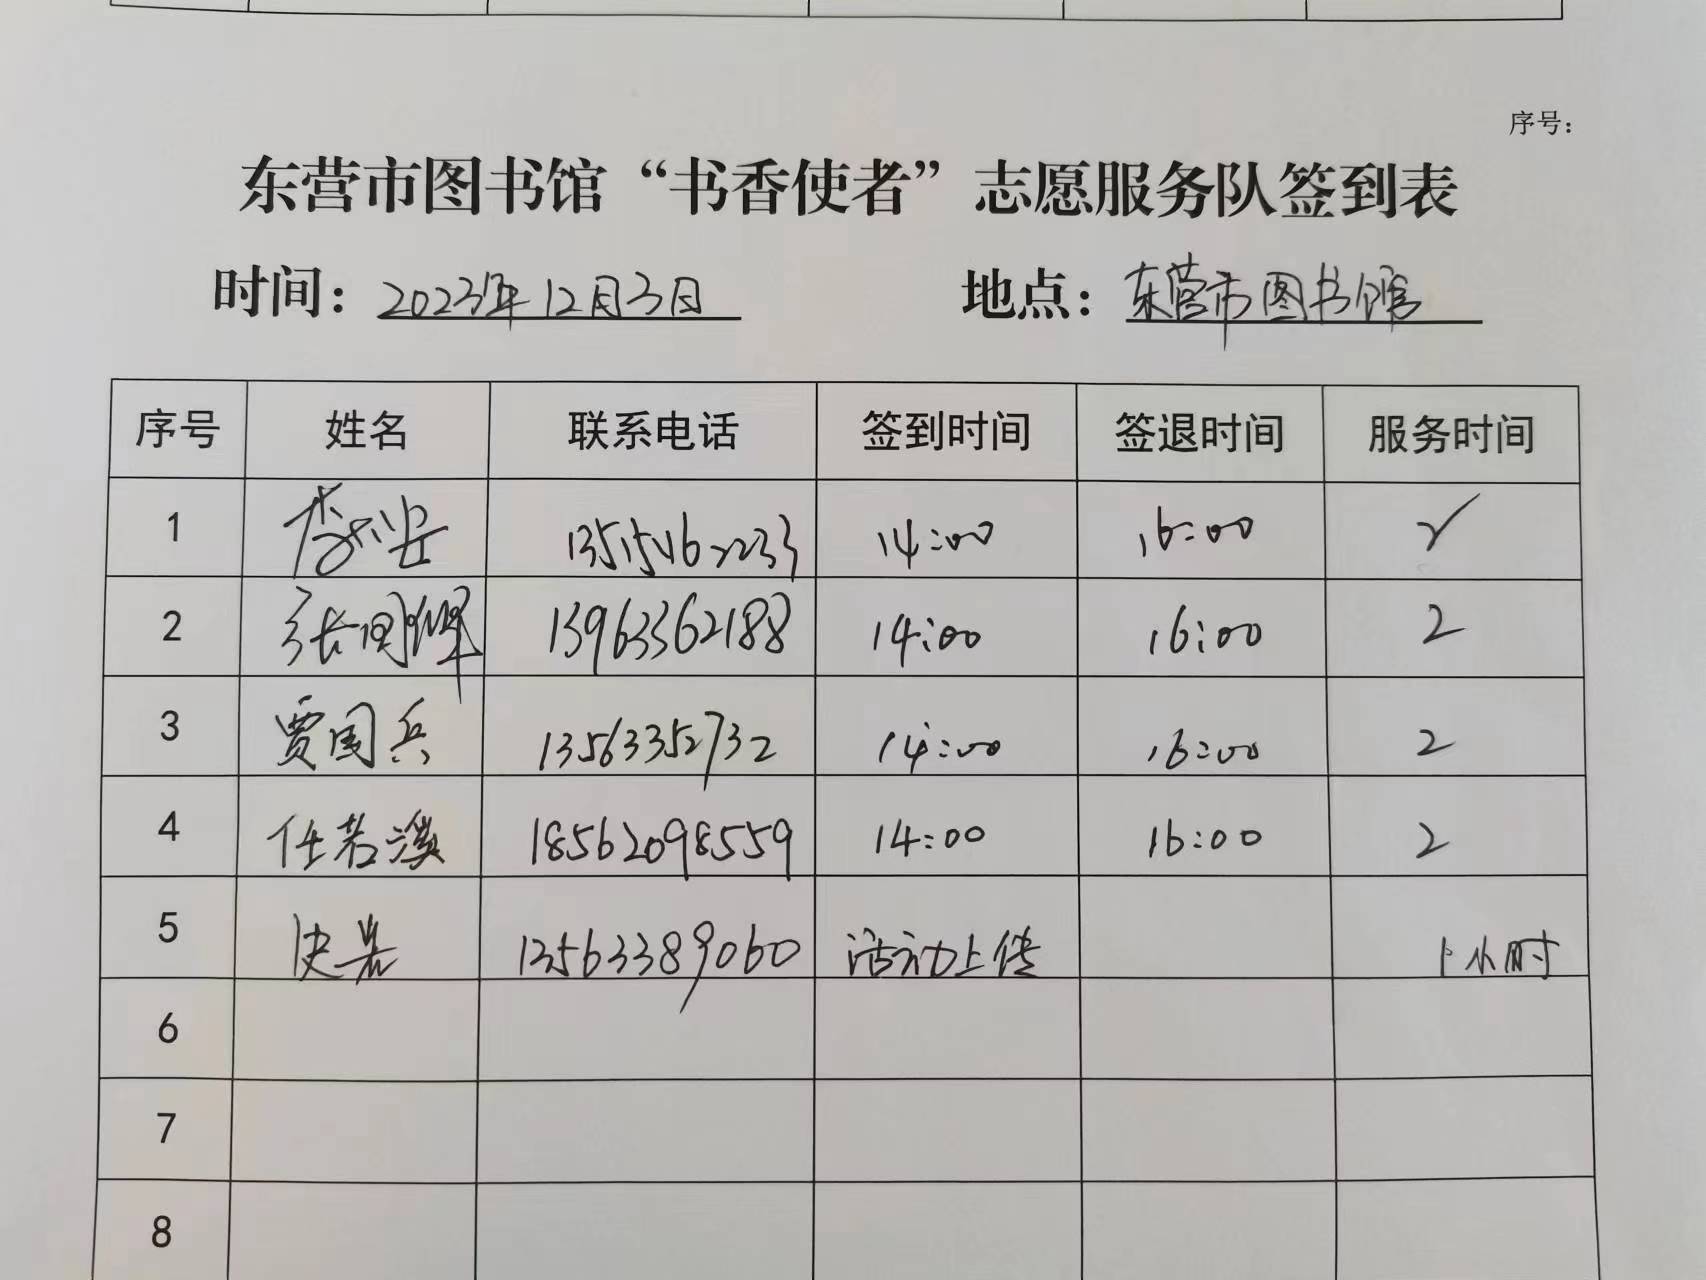 序号：
东营市图书馆“书香使者”志愿服务队签到表
时间：2023年12月3日 地点：东营市图书馆
序号 姓名 联系电话 签到时间 签退时间 服务时间
1 13515462233 14:00 16:00 2
2 张国辉 13963362188 14:00 16:00 2
3 贾国兵 13563352732 14:00 16:00 2
4 任若溪 18562098559 14:00 16:00 2
5 史岩 13563389060 活动上传 1小时
6
7
8